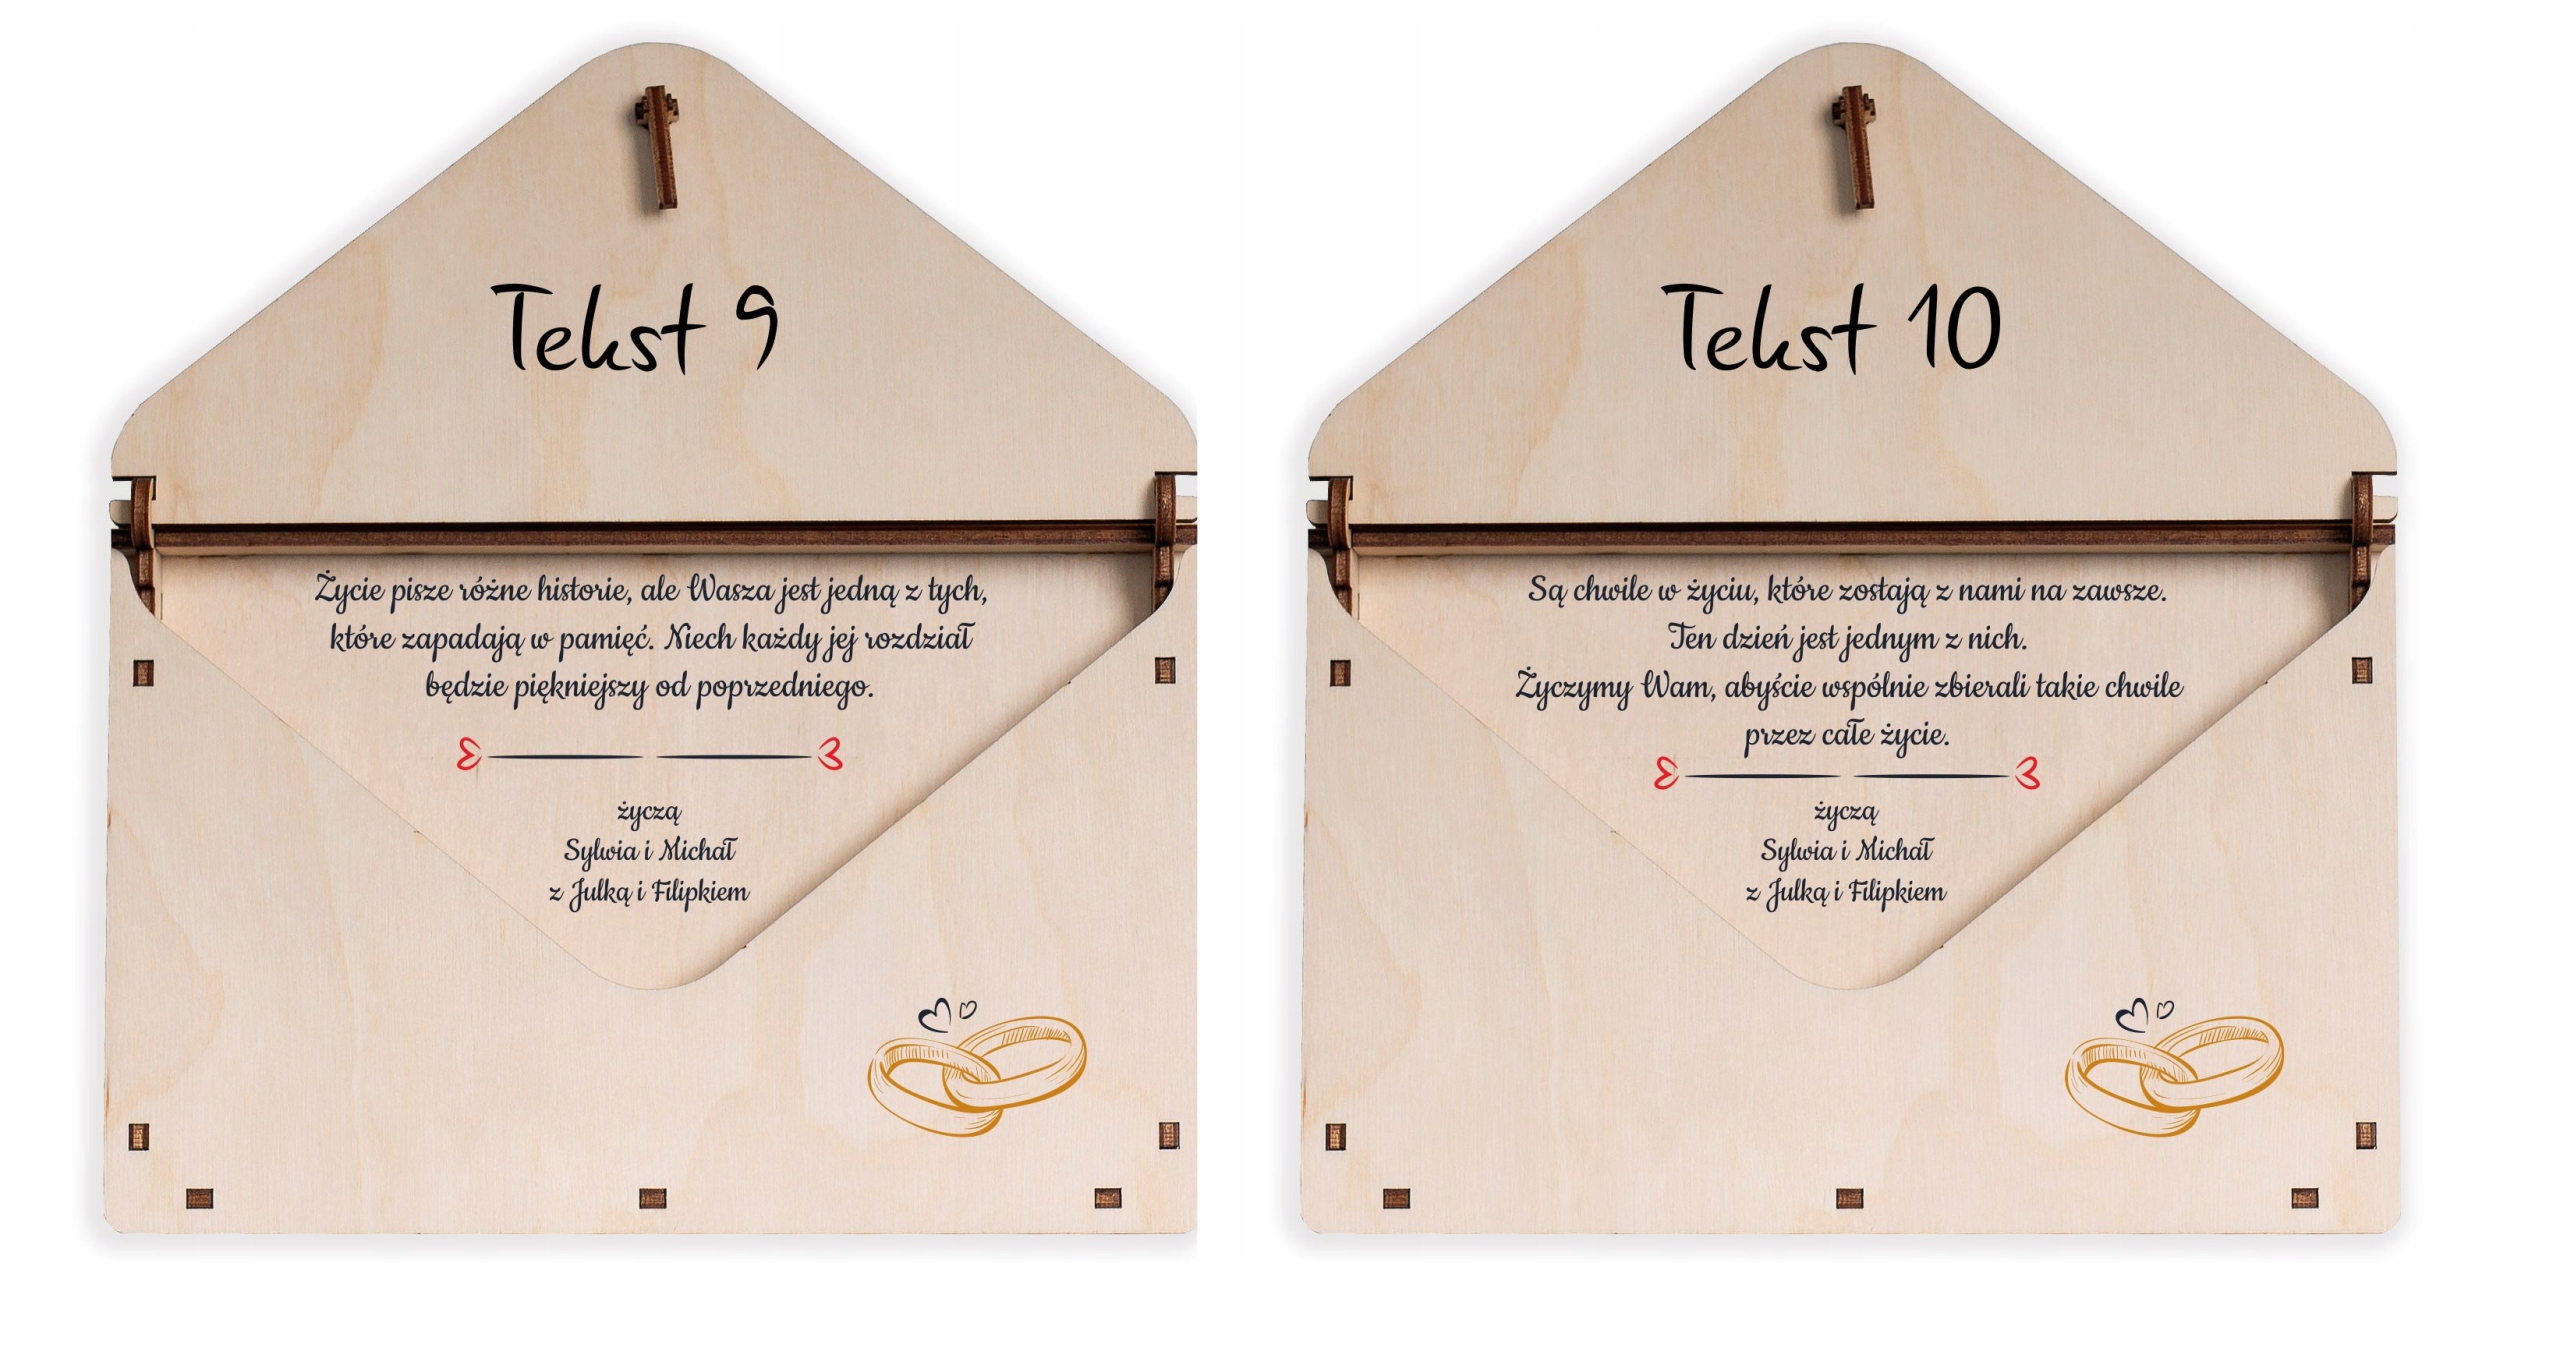 Tekst 9
Życie pisze różne historie, ale Wasza jest jedną z tych,
które zapadają w pamięć. Niech każdy jej rozdział
będzie piękniejszy od poprzedniego.
życzą
Sylwia i Michał
z Julką i Filipkiem
Tekst 10
Są chwile w życiu, które zostają z nami na zawsze.
Ten dzień jest jednym z nich.
Życzymy Wam, abyście wspólnie zbierali takie chwile
przez całe życie.
życzą
Sylwia i Michał
z Julką i Filipkiem